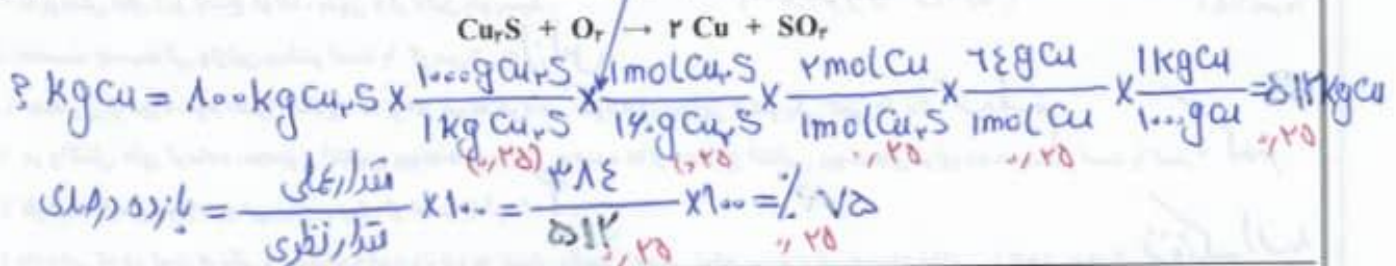 Cu₂S + O₂ → ۲ Cu + SO₂
? kgCu = ۸۰۰kgCu₂S × ۱۰۰۰gCu₂S / ۱kgCu₂S × ۱molCu₂S / ۱۶۰gCu₂S × ۲molCu / ۱molCu₂S × ۶۴gCu / ۱molCu × ۱kgCu / ۱۰۰۰gCu = ۵۱۲kgCu
(۰,۲۵) ۰,۲۵ ۰,۲۵ ۰,۲۵ ۰,۲۵
بازده درصدی = مقدار عملی / مقدار نظری × ۱۰۰ = ۳۸۴ / ۵۱۲ × ۱۰۰ = %۷۵
۰,۲۵ ۰,۲۵